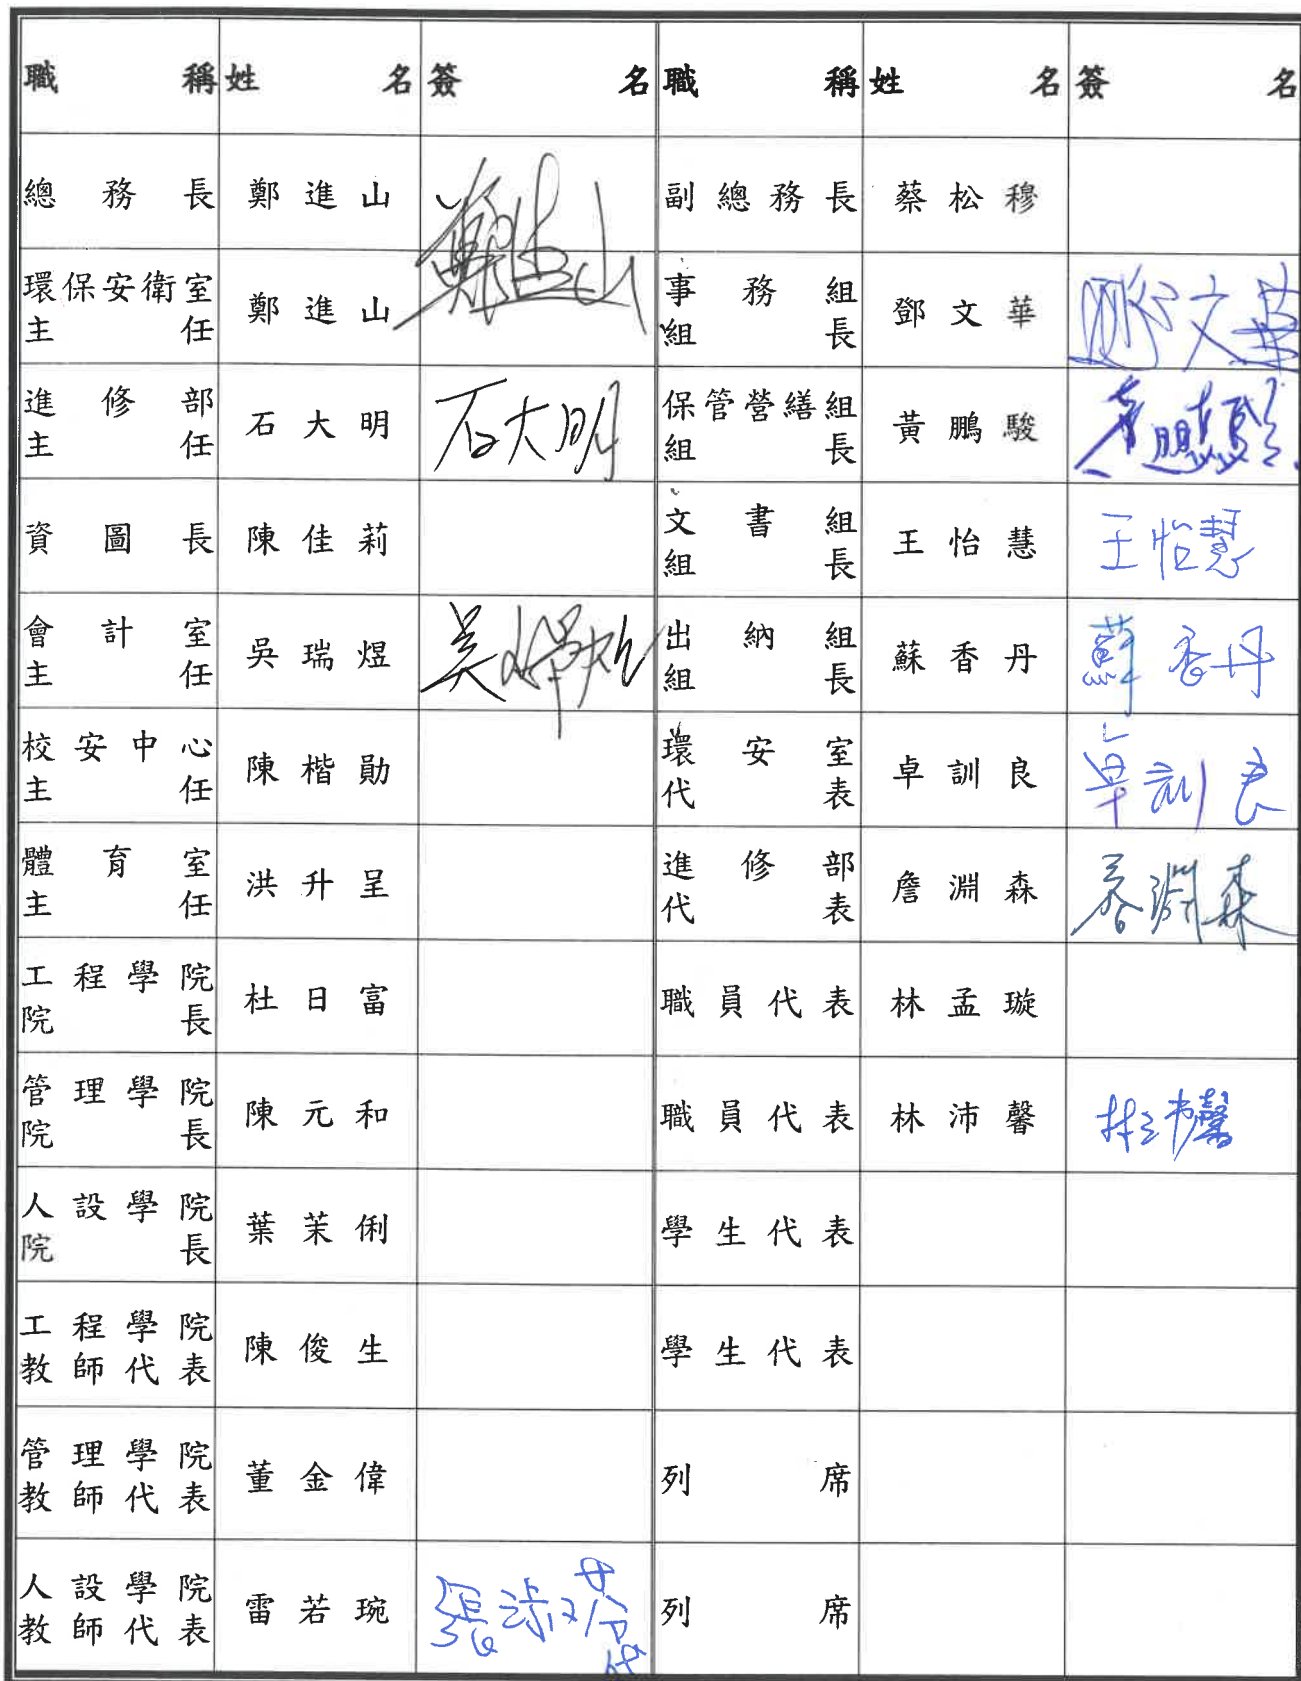 職稱 姓名 簽名 職稱 姓名 簽名
總務長 鄭進山 鄭進山 副總務長 蔡松穆
環保安衛室主任 鄭進山 事務組組長 鄧文華 鄧文華
進修部主任 石大明 石大明 保管營繕組組長 黃鵬駿 黃鵬駿
資圖長 陳佳莉 文書組組長 王怡慧 王怡慧
會計室主任 吳瑞煜 吳瑞煜 出納組組長 蘇香丹 蘇香丹
校安中心主任 陳楷勛 環安室代表 卓訓良 卓訓良
體育室主任 洪升呈 進修部代表 詹淵森 詹淵森
工程學院院長 杜日富 職員代表 林孟璇
管理學院院長 陳元和 職員代表 林沛馨 林沛馨
人設學院院長 葉茉俐 學生代表
工程學院教師代表 陳俊生 學生代表
管理學院教師代表 董金偉 列席
人設學院教師代表 雷若琬 張淑芬代 列席